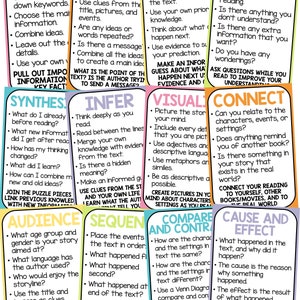 down keywords.
• Choose the main
• Combine ideas.
• Leave out the
details.
• Use your own
words.
PULL OUT IMPO
INFORMATION
KEY FACTS
• Use clues from the
title, pictures, and
events.
• Are any ideas or
words repeated?
• Is there a message?
• Combine all the ideas
to create a main idea.
WHAT IS THE POINT OF THE
TEXT? IS THE AUTHOR TRYING
TO SEND A MESSAGE?
next.
• Use your own prior
knowledge.
• Think about what
happen next.
• Use evidence to su
your prediction.
MAKE AN INFOR
GUESS ABOUT WHAT
HAPPEN NEXT US
EVIDENCE AND
reading
• Is there anything
you don't
understand?
• Is there any extra
information that
you want?
• Do you have any
wonderings?
ASK QUESTIONS WHILE YOU
READ TO IMPROVE YOUR
UNDERSTANDING
SYNTHESI
• What do I already
before reading?
• What new informa
did I get after reac
• How has my
thinking changed?
• What did I learn?
• How can I combine
new and old ideas?
JOIN THE PUZZLE PIECES
LINK PREVIOUS KNOWLED
TO NEW INFORMATION
INFER
• Think deeply as you
read.
• Read between the lines
• Merge your own
knowledge with
evidence from the
text.
• Is there a hidden
meaning?
USE CLUES FROM THE STO
AND YOUR OWN LIFE
LEARN WHAT THE AU
VISUALI
• Picture the story
your mind
• Include every detail
that you see a pict
• Use adjectives and
descriptive langua
• Use metaphors or
similes.
• Be as descriptive a
possible.
CREATE PICTURES IN YOU
CONNECT
• Can you relate to the
characters, events, or
settings?
• Does anything remind
you of another book?
• Is there something in
your story that
exists in the real
world?
CONNECT YOUR READING
TO YOURSELF, OTHER
BOOKS/MOVIES, AND TO
THE REAL WORLD
AUDIENCE
• What age group and
gender is your story
aimed at?
• What language has
the author used?
• Who would enjoy the
storyline?
• Use the title and
SEQUEN
• Place the events
the text in order.
• What happened fi
• What happened
second?
• What happened la
COMPARE
AND CONTRA
• How are the charac
and the settings in
text the same?
• How are the chara
and the settings in
text different?
• Use a Venn Diagra
compare and cont
CAUSE AND
EFFECT
• What happened in the
text, and why did it
happen?
• The cause is the reason
why something
happened.
• The effect is the result
of what happened.